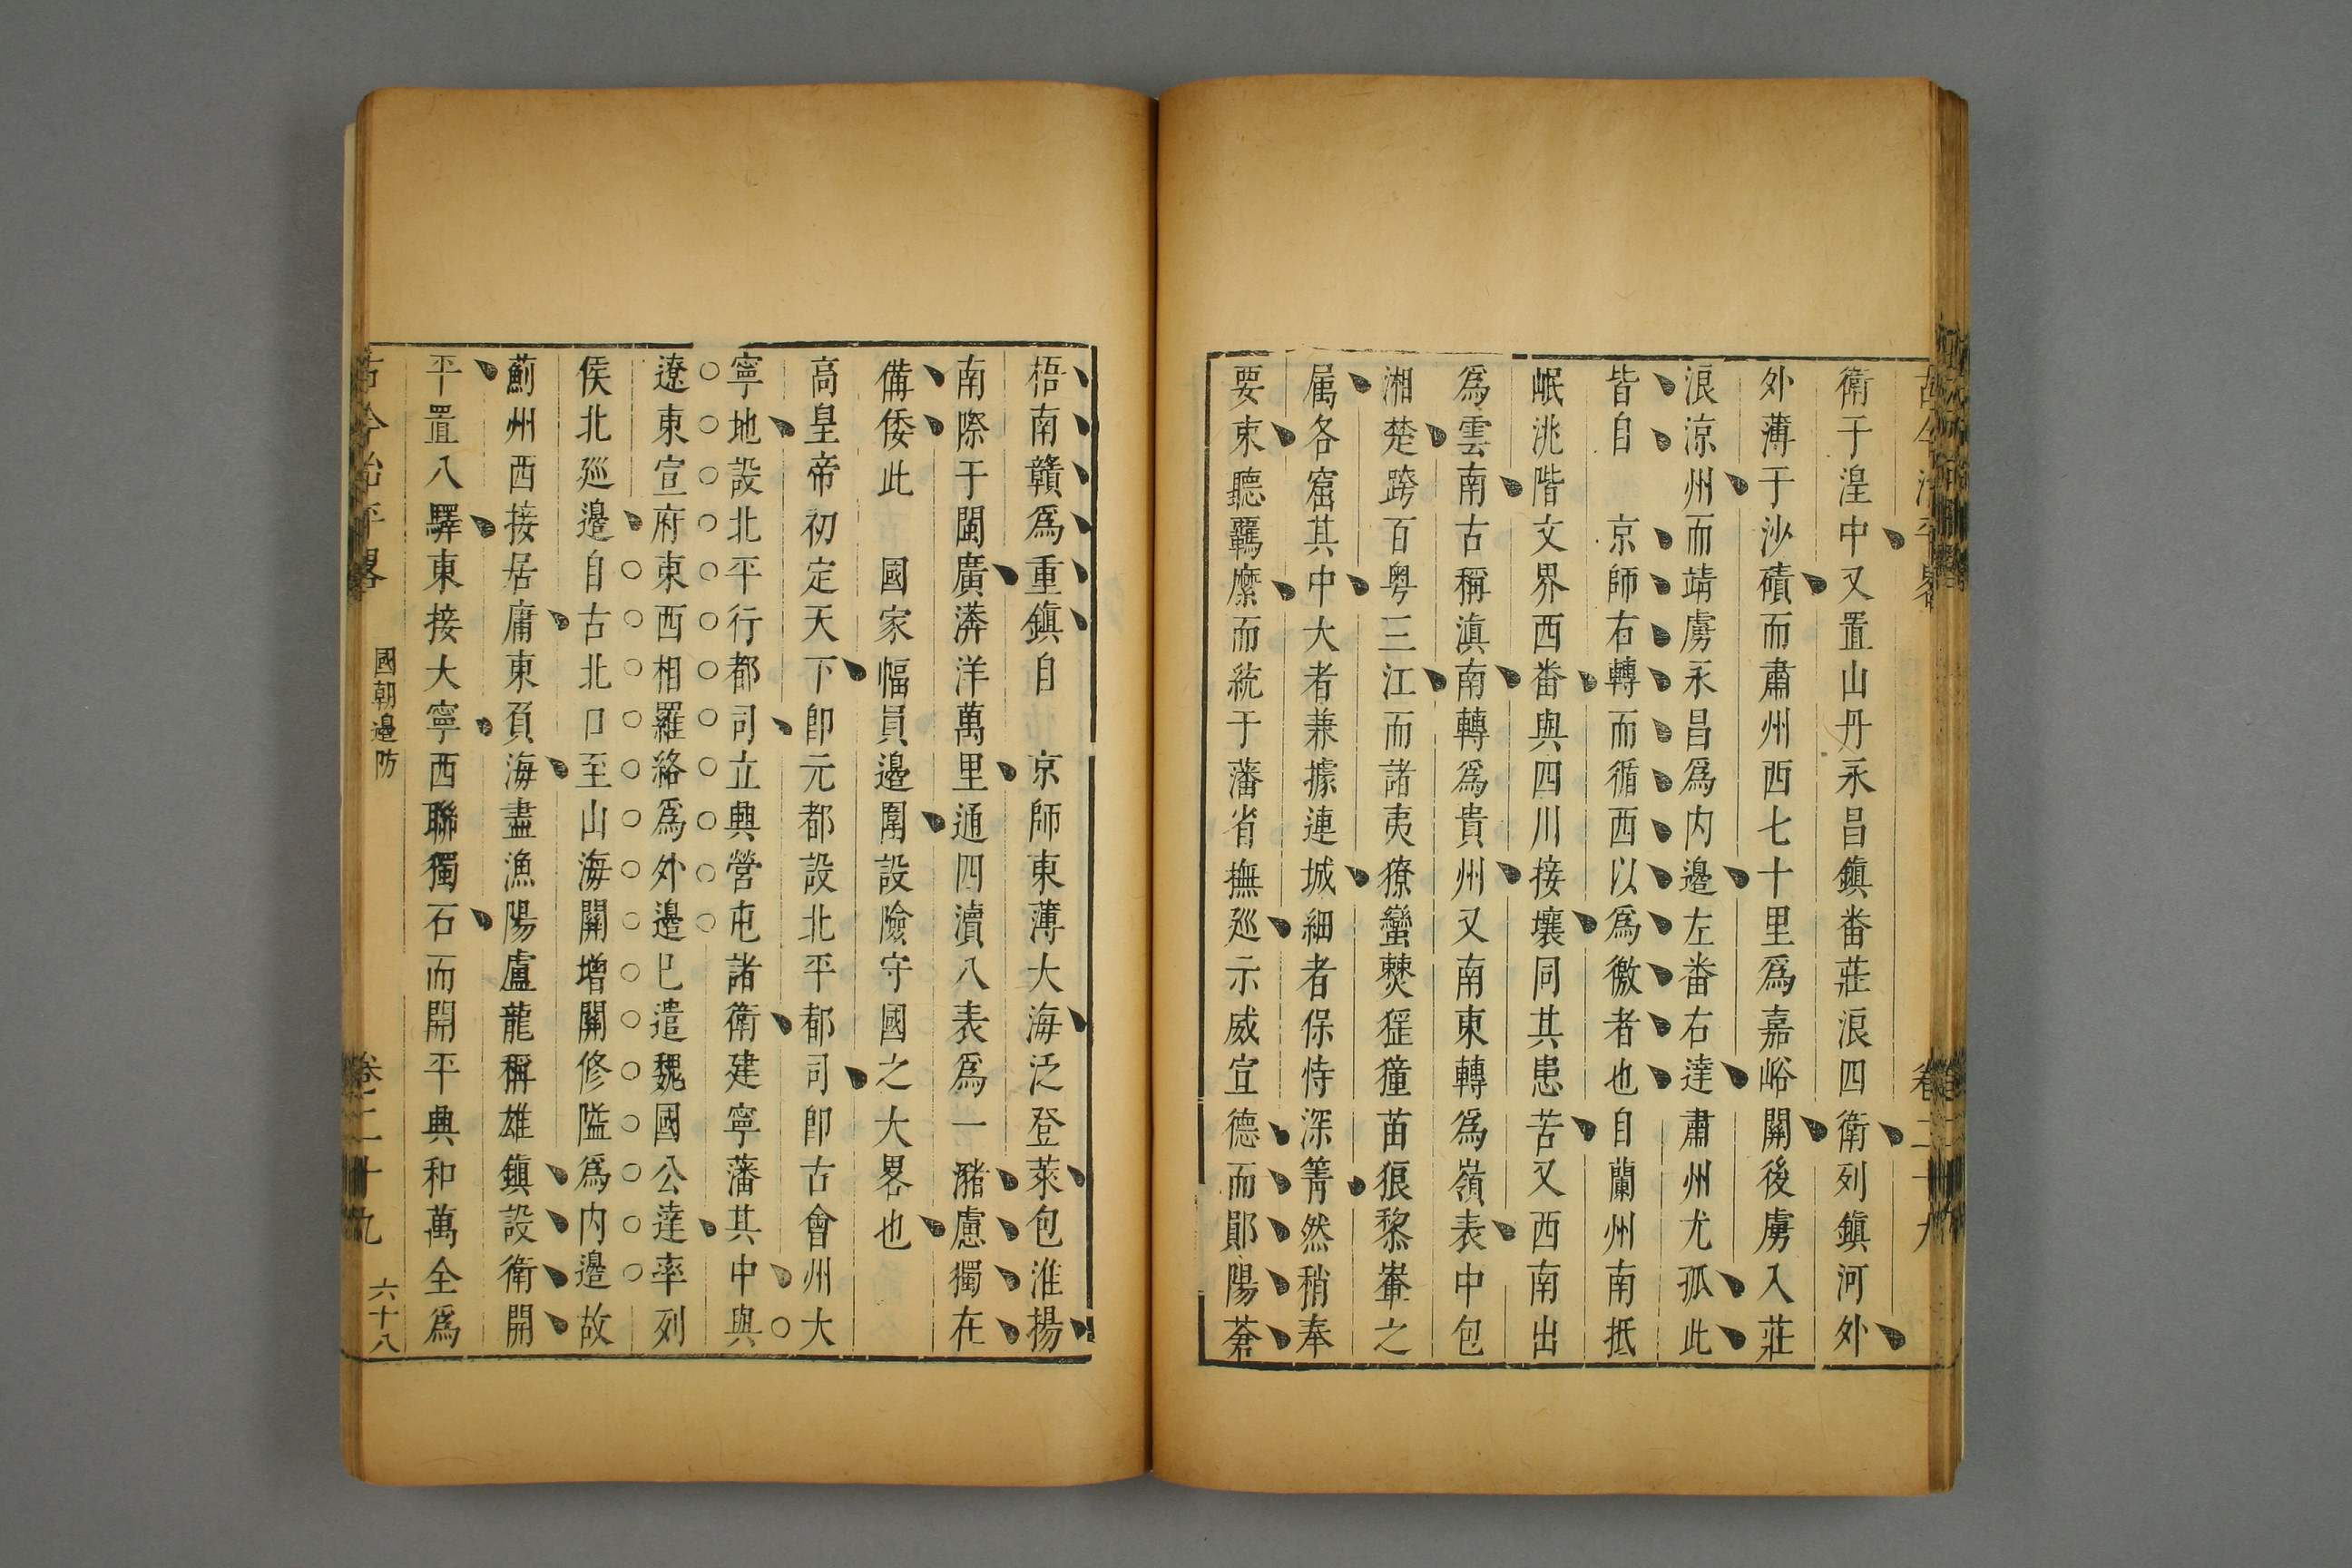 古今治平畧 卷二十九
衛于湟中又置山丹永昌鎮番莊浪四衛列鎮河外
外薄于沙磧而肅州西七十里爲嘉峪關後虜入莊
浪涼州而靖虜永昌爲内邊左番右達肅州尤孤此
皆自 京師右轉而循西以爲徼者也自蘭州南抵
岷洮階文界西番與四川接壤同其患苦又西南出
爲雲南古稱滇南轉爲貴州又南東轉爲嶺表中包
湘楚跨百粤三江而諸夷獠蠻僰猺獞苗狼黎輋之
属各窟其中大者兼據連城細者保恃深箐然稍奉
要束聽羈縻而統于藩省撫廵示威宣德而鄖陽蒼
梧南贛爲重鎮自 京師東薄大海泛登萊包淮揚
南際于閩廣漭洋萬里通四瀆八表爲一瀦慮獨在
備倭此 國家幅員邊圉設險守國之大畧也
高皇帝初定天下卽元都設北平都司卽古會州大
寧地設北平行都司立興營屯諸衛建寧藩其中與
遼東宣府東西相羅絡爲外邊已遣魏國公達率列
侯北廵邊自古北口至山海關增關修隘爲内邊故
薊州西接居庸東負海盡漁陽盧龍稱雄鎮設衛開
平置八驛東接大寧西聯獨石而開平興和萬全爲
古今治平畧 國朝邊防 卷二十九 六十八